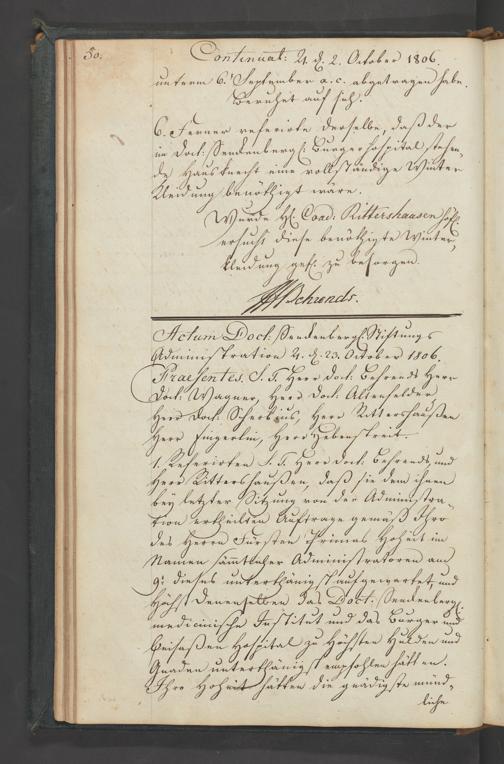 50.
Continuat: 4. d. 2. October 1806.
unterm 6. September a. c. abgetragen habe.
Beruhet auf sich.
6. Ferner referirte derselbe, daß der
im Doct: Senckenberg. Bürgerhospital stehen-
de Hausknecht eine vollständige Winter
Kleidung benöthiget wäre.
Wurde H. Coad: Rittershausen höfl.
ersucht diese benöthigte Winter-
kleidung gef. zu besorgen.
Behrends.
Actum Doct: Senckenberg. Stiftungs
Administration 4. d. 23. October 1806.
Praesentes. S. T. Herr Doct. Behrends Herr
Doct: Wagner, Herr Doct. Altenfelder,
Herr Doct. Scherbius, Herr Rittershaußen
Herr Fingerlin, Herr Hebenstreit.
1. Referirten S. T. Herr Doct. Behrends und
Herr Rittershaußen, daß sie dem ihnen
bey letzter Sitzung von der Administra-
tion ertheilten Auftrage gemäß Ihro
des Herrn Fürsten Primas Hoheit im
Namen sämmtlicher Administratoren am
9. dieses unterthänigst aufgewartet und
Höchst Denenselben das Doct: Senckenberg.
medicinische Institut und das Bürger und
Beisaßen Hospital zu Höchsten Hulden und
Gnaden unterthänigst empfohlen hätten.
Ihro Hoheit hätten die gnädigste münd-
liche